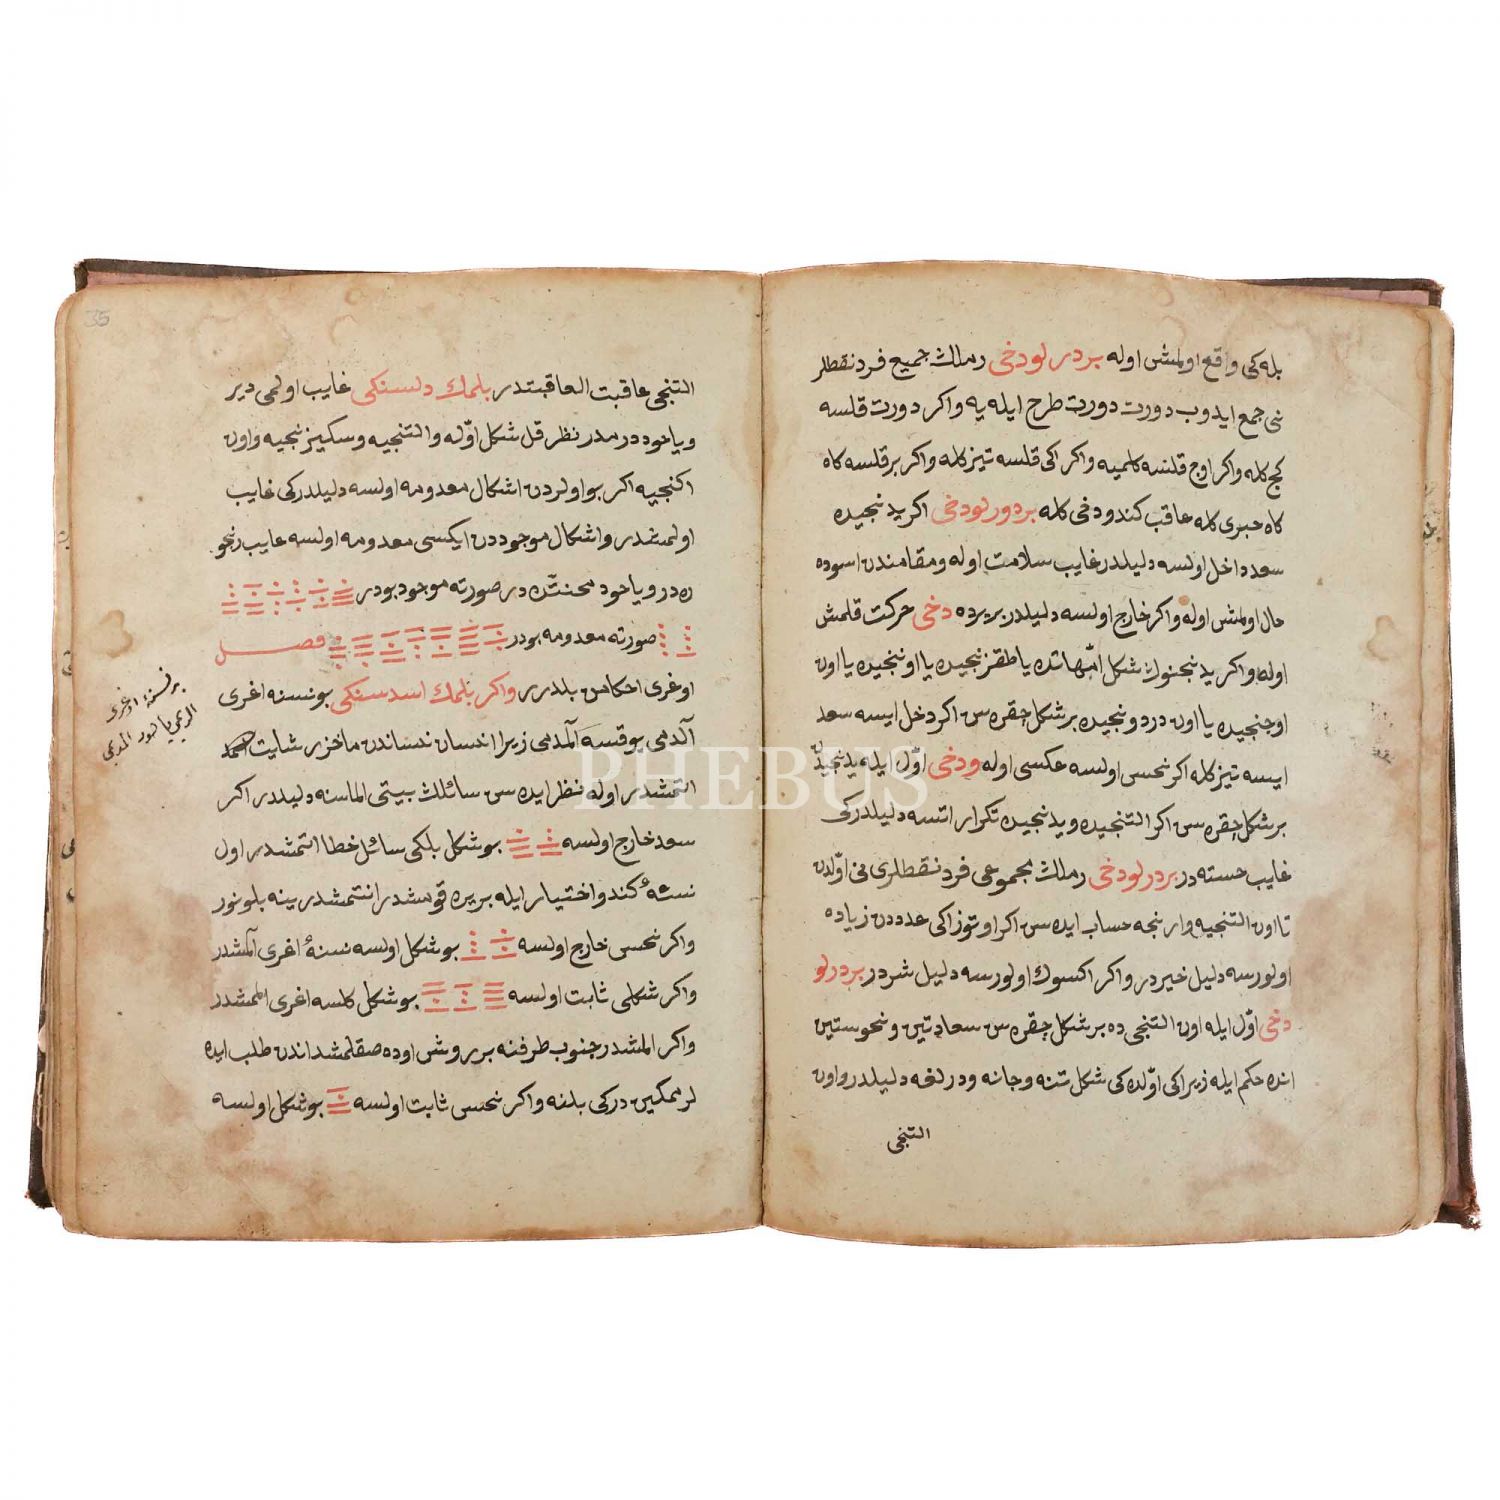 بله كی واقع اولمش اوله بر در لو دخی رملك جميع فرد نقطلر
نی جمع ايدوب دورت دورت طرح ايله يه واكر دورت قلسه
كج كله واكر اوج قلسه كلميه واكر اكی قلسه تيز كله واكر بر قلسه كاه
كاه خبری كله عاقب كندو دخی كله بر دورلو دخی اكر يدنجيده
سعد داخل اولسه دليلدر غايب سلامت اوله ومقامندن اسوده
حال اولمش اوله واكر خارج اولسه دليلدر بر يرده دخی حركت قلمش
اوله واكر يدنجنوك شكل امهاتده يا طقزنجيده يا اوننجيده يا اون
اوجنجيده يا اون دردونجيده بر شكل چقره سن اكر دخل ايسه سعد
ايسه تيز كله اكر نحس اولسه عكسی اوله ودخی اوّل ايله يدنجيدن
بر شكل چقره سن اكر التنجيده ويدنجيده تكرار اتسه دليلدر كی
غايب خسته در بر در لو دخی رملك مجموعی فرد نقطلری نی اوّلدن
تا اون التنجيه وارنجه حساب ايده سن اكر اوتوز اكی عددن زياده
اولورسه دليل خيردر واكر اكسوك اولورسه دليل شردر بر در لو
دخی اوّل ايله اون التنجی ده بر شكل چقره سن سعادتين ونحوستين
انده حكم ايله زيرا كی اوّلده كی شكل تنه وجانه ودرلغه دليلدر واون
التنجی
35
التنجی عاقبت العاقبتدر بلمك دلسنكی غايب اولمی دير
وياخود درمدر نظر قل شكل اوّله والتنجيه وسكيزنجيه واون
اكنجيه اكر بو اولردن اشكال معدومه اولسه دليلدر كی غايب
اولمشدر واشكال موجوددن ايكسی معدومه اولسه غايب رنجو
ره در وياخود محنتده در صورته موجود بودر
صورته معدومه بودر فصل
اوغری احكامن بلدرر واكر بلمك اسدسنكی بو نسنه اغری
آلدمی يوقسه آلمدمی زيرا انسان نساندن ماخزر شايت
التمشدر اوله نظر ايده سن سائلك بيتی الماسنه دليلدر اكر
سعد خارج اولسه بو شكل بلكی سائل خطا التمشدر اول
نسنهٔ كندو اختيار ايله بر يره قومشدر انتمشدر ينه بلونور
واكر نحس خارج اولسه بو شكل اولسه نسنهٔ اغری آلمشدر
واكر شكلی ثابت اولسه بو شكل كلسه اغری الممشدر
واكر المشدر جنوب طرفنه بر روش اوده صقلمشد اندن طلب ايده
لر ممكين در كی بلنه واكر نحس ثابت اولسه بو شكل اولسه
بر نسنهٔ اوغری
PHEBUS